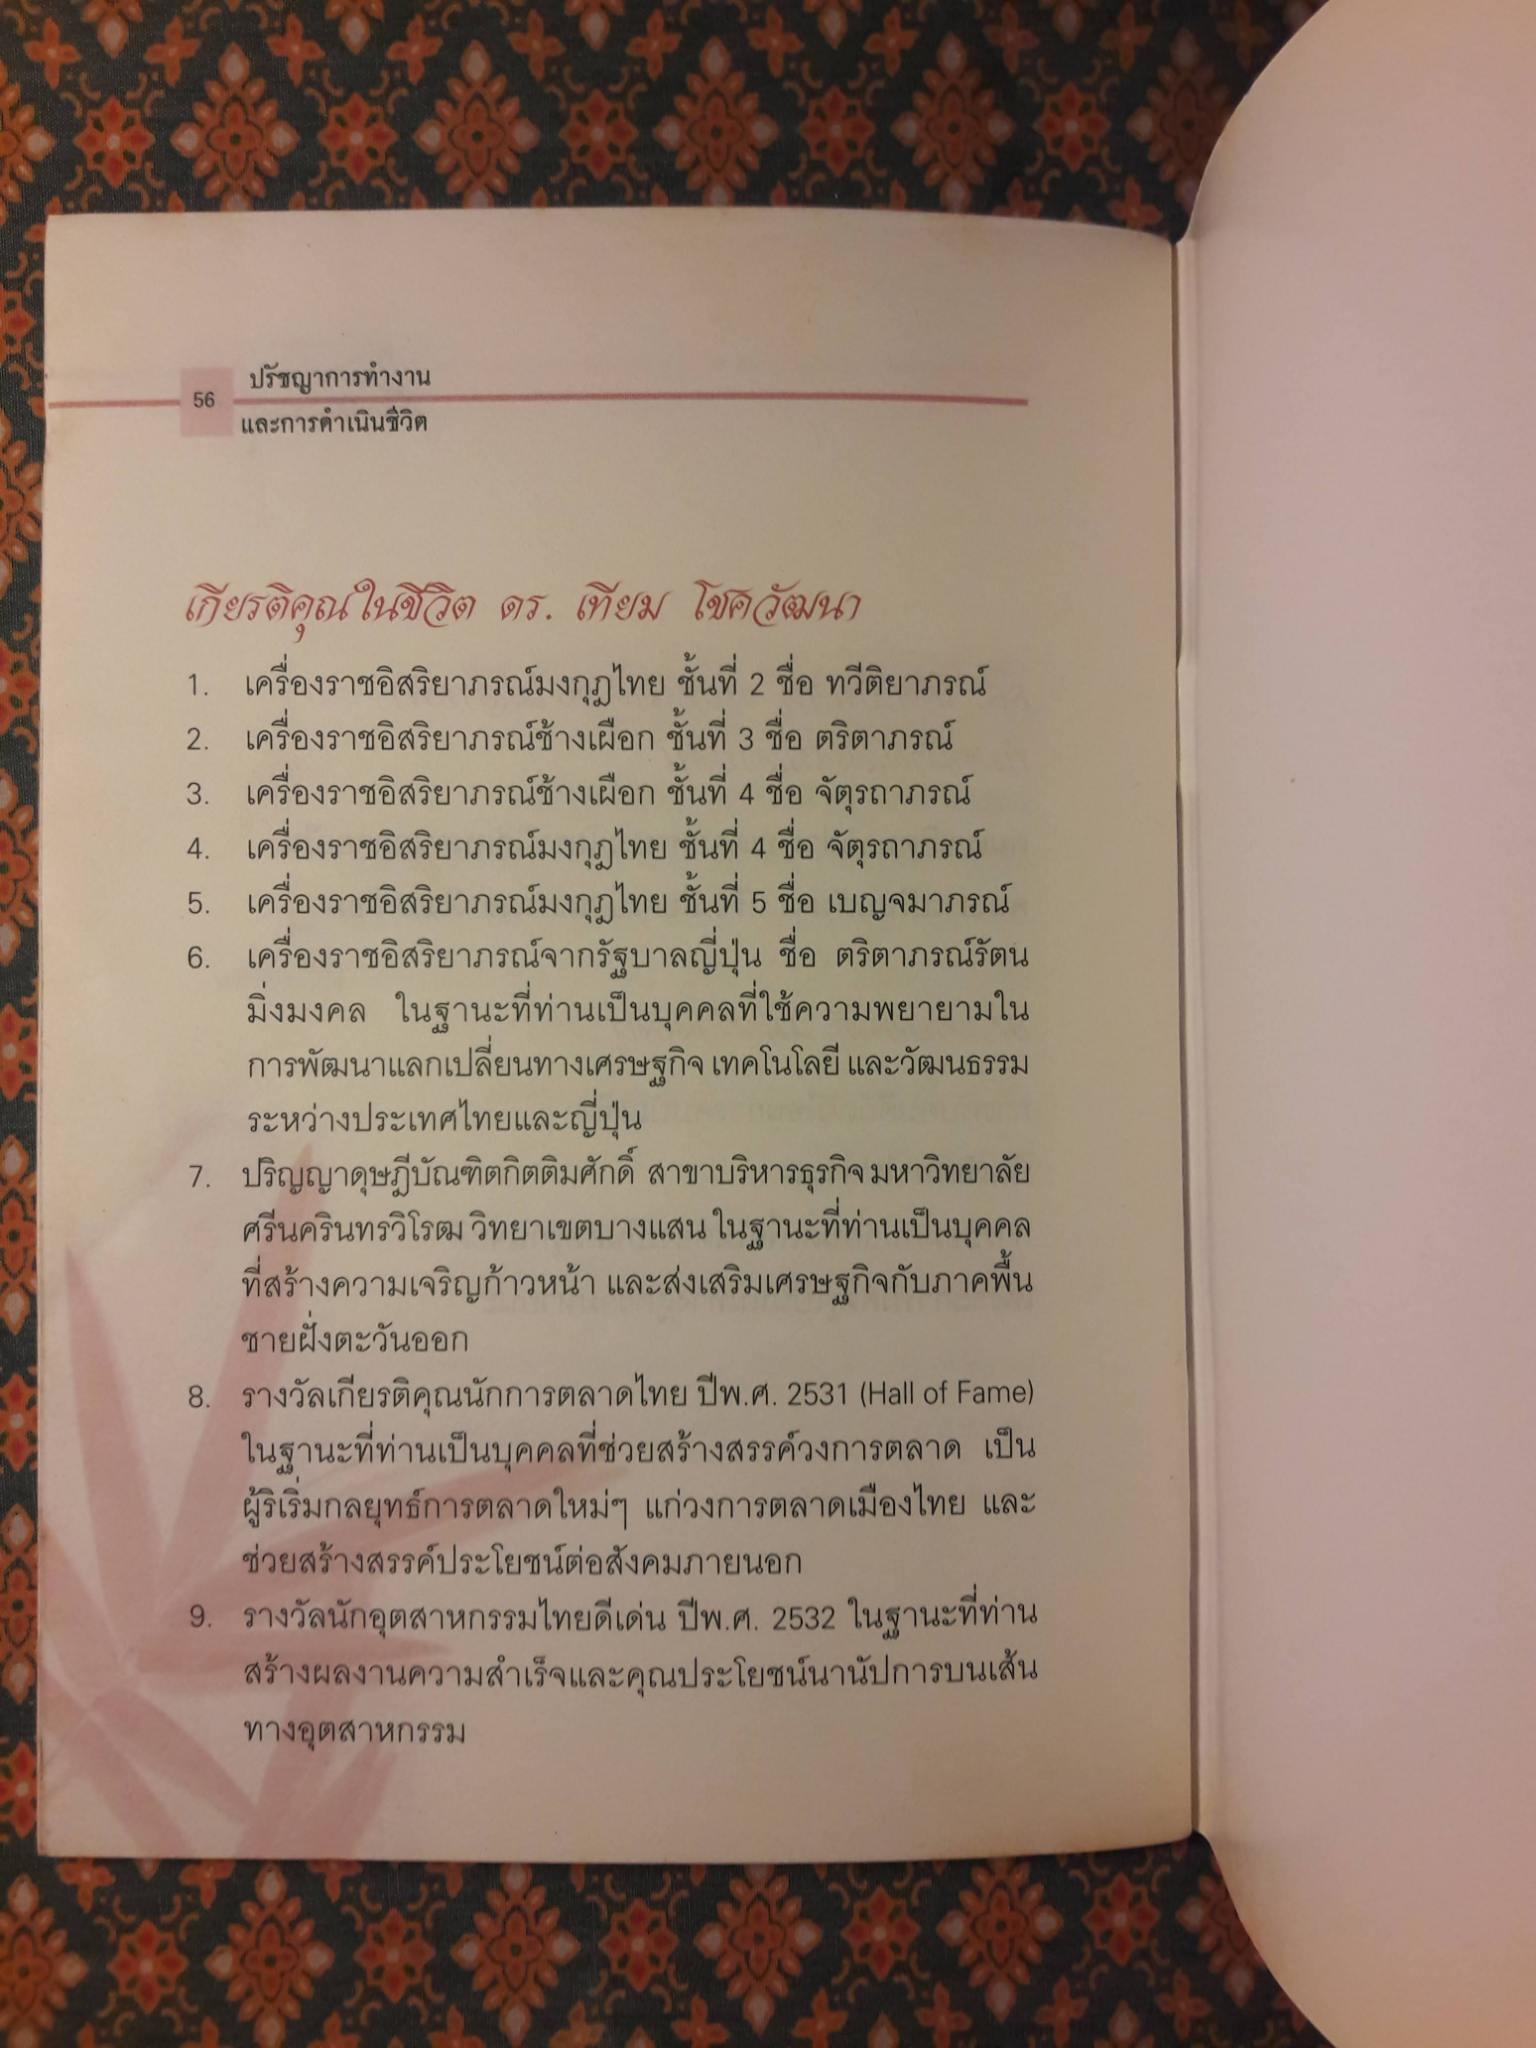 56
ปรัชญาการทำงาน
และการดำเนินชีวิต
เกียรติคุณในชีวิต ดร. เทียม โชควัฒนา
1. เครื่องราชอิสริยาภรณ์มงกุฎไทย ชั้นที่ 2 ชื่อ ทวีติยาภรณ์
2. เครื่องราชอิสริยาภรณ์ช้างเผือก ชั้นที่ 3 ชื่อ ตริตาภรณ์
3. เครื่องราชอิสริยาภรณ์ช้างเผือก ชั้นที่ 4 ชื่อ จัตุรถาภรณ์
4. เครื่องราชอิสริยาภรณ์มงกุฎไทย ชั้นที่ 4 ชื่อ จัตุรถาภรณ์
5. เครื่องราชอิสริยาภรณ์มงกุฎไทย ชั้นที่ 5 ชื่อ เบญจมาภรณ์
6. เครื่องราชอิสริยาภรณ์จากรัฐบาลญี่ปุ่น ชื่อ ตริตาภรณ์รัตน
มิ่งมงคล ในฐานะที่ท่านเป็นบุคคลที่ใช้ความพยายามใน
การพัฒนาแลกเปลี่ยนทางเศรษฐกิจ เทคโนโลยี และวัฒนธรรม
ระหว่างประเทศไทยและญี่ปุ่น
7. ปริญญาดุษฎีบัณฑิตกิตติมศักดิ์ สาขาบริหารธุรกิจ มหาวิทยาลัย
ศรีนครินทรวิโรฒ วิทยาเขตบางแสน ในฐานะที่ท่านเป็นบุคคล
ที่สร้างความเจริญก้าวหน้า และส่งเสริมเศรษฐกิจกับภาคพื้น
ชายฝั่งตะวันออก
8. รางวัลเกียรติคุณนักการตลาดไทย ปีพ.ศ. 2531 (Hall of Fame)
ในฐานะที่ท่านเป็นบุคคลที่ช่วยสร้างสรรค์วงการตลาด เป็น
ผู้ริเริ่มกลยุทธ์การตลาดใหม่ๆ แก่วงการตลาดเมืองไทย และ
ช่วยสร้างสรรค์ประโยชน์ต่อสังคมภายนอก
9. รางวัลนักอุตสาหกรรมไทยดีเด่น ปีพ.ศ. 2532 ในฐานะที่ท่าน
สร้างผลงานความสำเร็จและคุณประโยชน์นานัปการบนเส้น
ทางอุตสาหกรรม